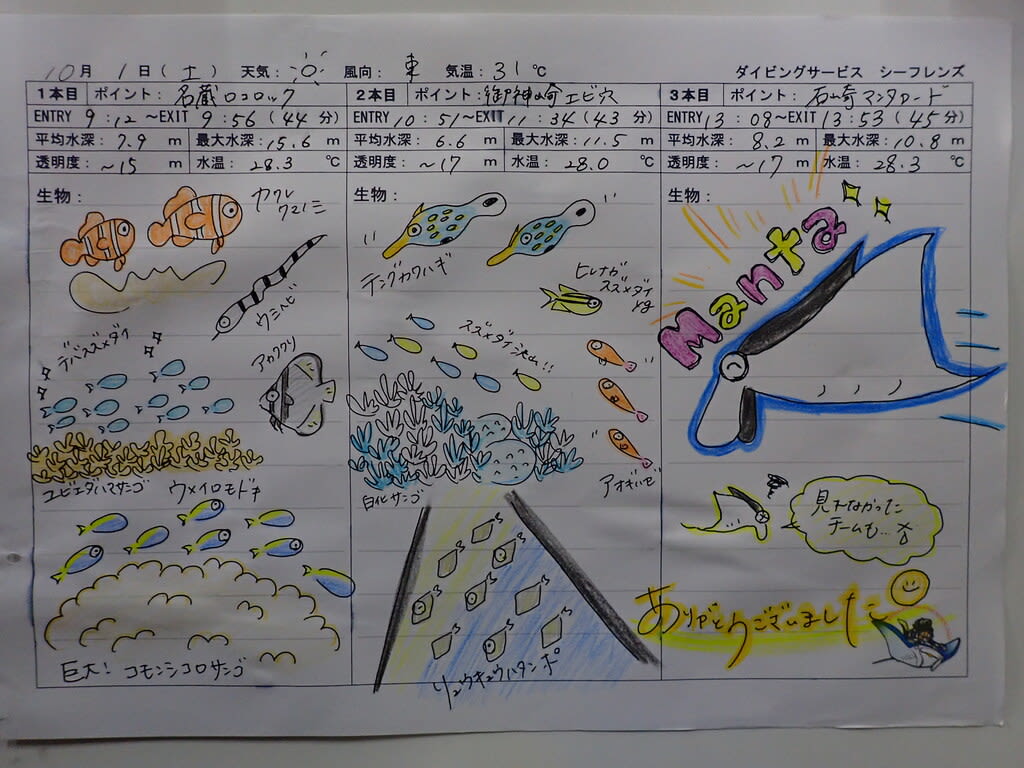 10月 1日(土) 天気: 風向: 東 気温: 31℃ ダイビングサービス シーフレンズ
1本目 ポイント: 名蔵ロコロック
ENTRY 9:12~EXIT 9:56(44分)
平均水深: 7.9 m 最大水深: 15.6 m
透明度: ~15 m 水温: 28.3 ℃
生物:
カクレクマノミ
ウミヘビ
デバスズメダイ
アカククリ
ユビエダハマサンゴ
ウメイロモドキ
巨大! コモンシコロサンゴ
2本目 ポイント: 御神崎エビ穴
ENTRY 10:51~EXIT 11:34(43分)
平均水深: 6.6 m 最大水深: 11.5 m
透明度: ~17 m 水温: 28.0 ℃
生物:
テングカワハギ
ヒレナガ
スズメダイ
yg
スズメダイ沢山!!
アオギハゼ
白化サンゴ
リュウキュウハタンポ
3本目 ポイント: 石崎マンタロード
ENTRY 13:08~EXIT 13:53(45分)
平均水深: 8.2 m 最大水深: 10.8 m
透明度: ~17 m 水温: 28.3 ℃
生物:
Manta
見れなかった
チームも…
ありがとうございました